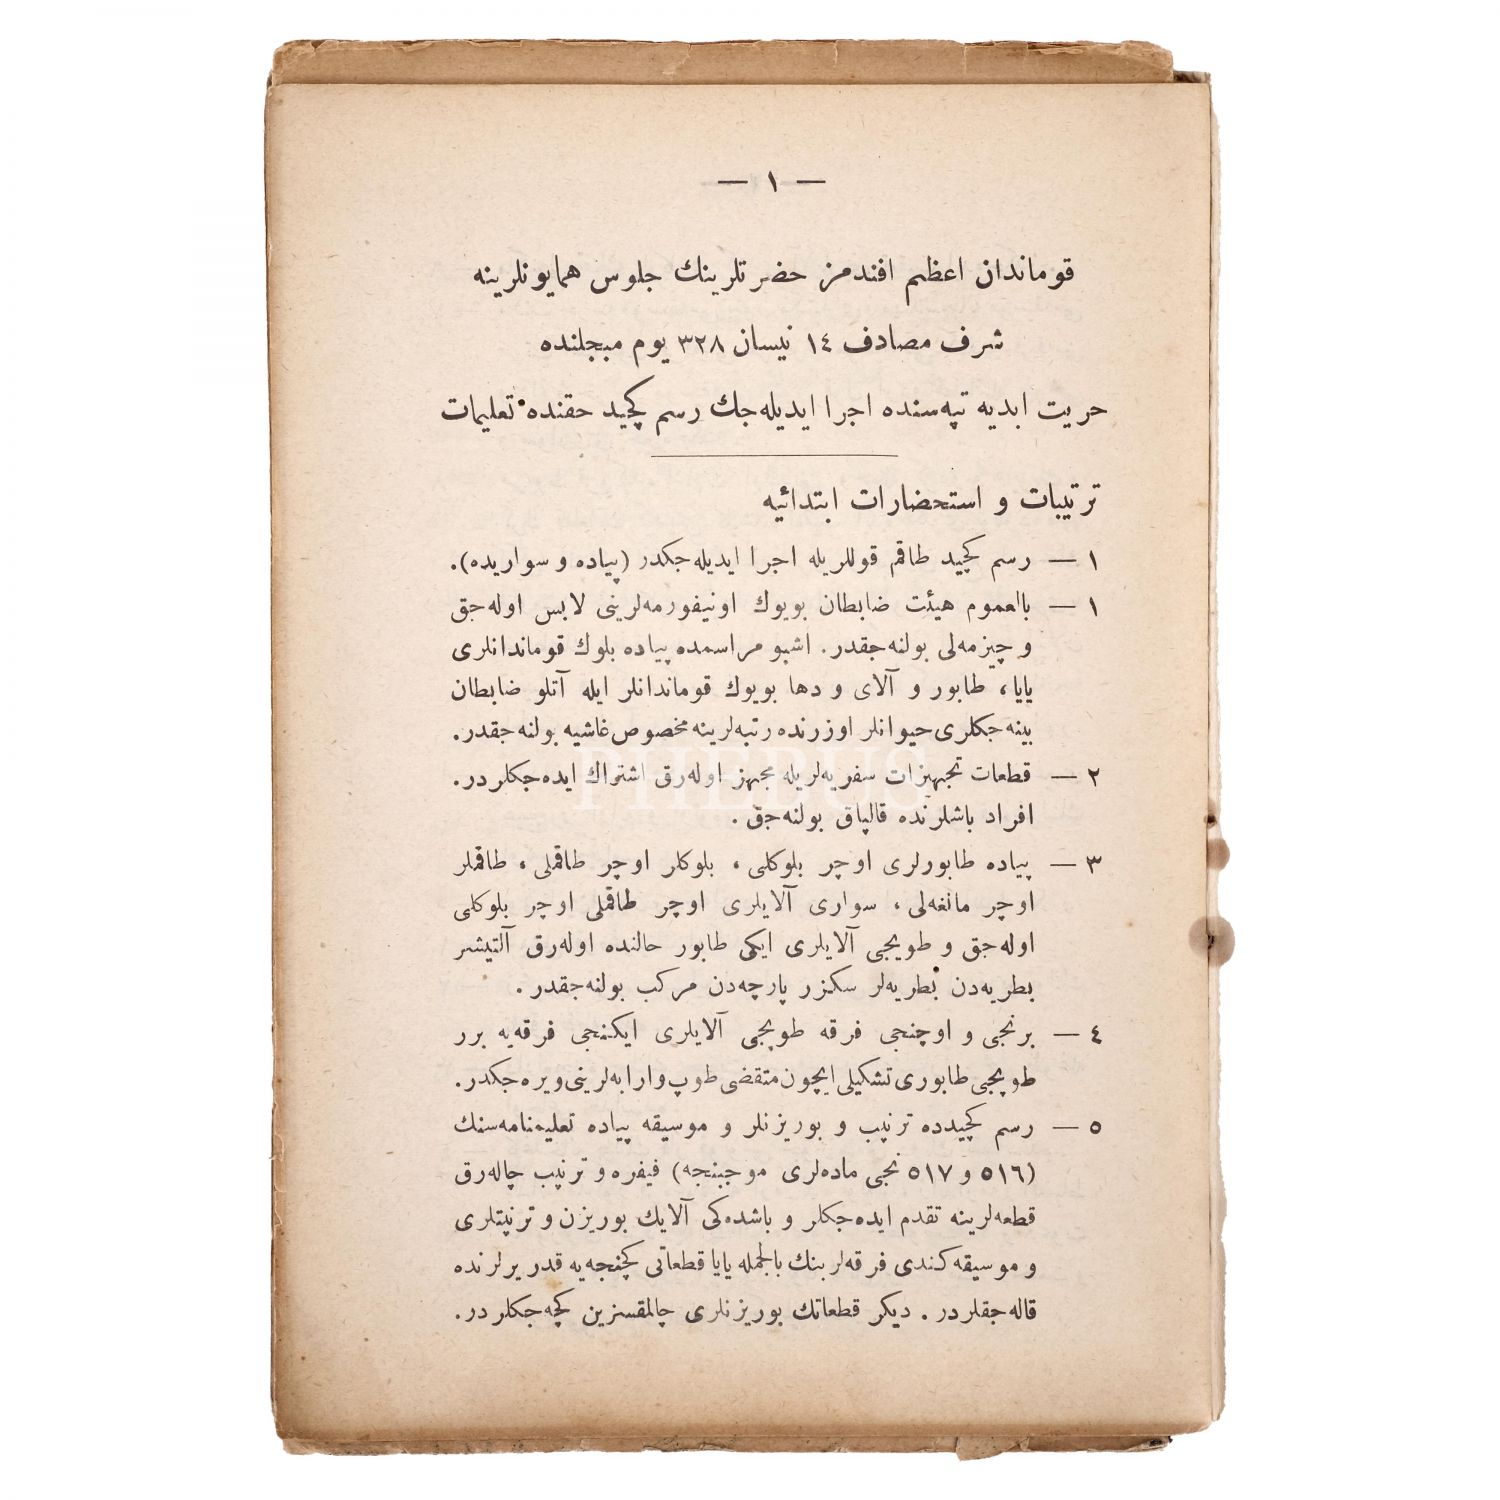 — ١ —
قوماندان اعظم افندمز حضرتلرينك جلوس همايونلرينه
شرف مصادف ١٤ نيسان ٣٢٨ يوم مبجلنده
حريت ابديه تپه‌سنده اجرا ايديله‌جك رسم كچيد حقنده تعليمات
ترتيبات و استحضارات ابتدائيه
١ — رسم كچيد طاقم قوللريله اجرا ايديله‌جكدر (پياده و سواريده).
١ — بالعموم هيئت ضابطان بويوك اونيفورمه‌لريني لابس اوله‌جق
و چيزمه‌لى بولنه‌جقدر. اشبو مراسمده پياده بلوك قوماندانلرى
يايا، طابور و آلاى و دها بويوك قوماندانلر ايله آتلو ضابطان
بينه‌جكلرى حيوانلر اوزرنده رتبه‌لرينه مخصوص غاشيه بولنه‌جقدر.
٢ — قطعات تجهيزات سفريه‌لريله مجهز اوله‌رق اشتراك ايده‌جكلردر.
افراد باشلرنده قالپاق بولنه‌جق.
٣ — پياده طابورلرى اوچر بلوكلى، بلوكلر اوچر طاقملى، طاقملر
اوچر مانغه‌لى، سوارى آلايلرى اوچر طاقملى اوچر بلوكلى
اوله‌جق و طوپجى آلايلرى ايكى طابور حالنده اوله‌رق آلتيشر
بطريه‌دن بطريه‌لر سكزر پارچه‌دن مركب بولنه‌جقدر.
٤ — برنجى و اوچنجى فرقه طوپجى آلايلرى ايكنجى فرقه‌يه برر
طوپجى طابورى تشكيلى ايچون متقضى طوپ وارابه‌لرينى ويره‌جكدر.
٥ — رسم كچيدده ترنپت و بوريزنلر و موسيقه پياده تعليمنامه‌سنك
(٥١٦ و ٥١٧ نجى ماده‌لرى موجبنجه) فيفره و ترنپت چاله‌رق
قطعه‌لرينه تقدم ايده‌جكلر و باشده‌كى آلايك بوريزن و ترنپتلرى
و موسيقه كندى فرقه‌لرينك بالجمله يايا قطعاتى كچنجه‌يه قدر يرلرنده
قاله‌جقلردر. ديكر قطعاتك بوريزنلرى چالمقسزين كچه‌جكلردر.
PHEBUS